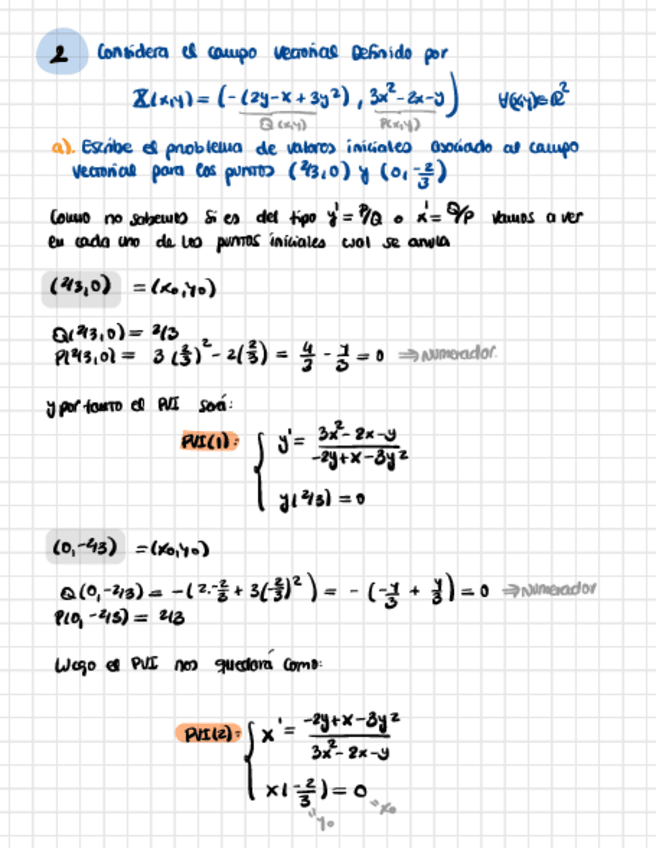 2 Considera el campo vectorial Definido por
X(x,y) = (-(2y-x+3y²), 3x²-2x-y) ∀(x,y)∈ℝ²
Q(x,y) P(x,y)
a). Escribe el problema de valores iniciales asociado al campo
vectorial para los puntos (2/3,0) y (0,-2/3)
Como no sabemos si es del tipo y'=P/Q o x'=Q/P vamos a ver
en cada uno de los puntos iniciales cual se anula
(2/3,0) =(x₀,y₀)
Q(2/3,0) = 2/3
P(2/3,0) = 3(2/3)²-2(2/3) = 4/3 - 4/3 = 0 ⇒Numerador.
y por tanto el PVI será:
PVI(1): { y' = 3x²-2x-y / -2y+x-3y²
y(2/3) = 0
(0,-2/3) =(x₀,y₀)
Q(0,-2/3) = -(2·-2/3 + 3(-2/3)²) = -(-4/3 + 4/3) = 0 ⇒Numerador
P(0,-2/3) = 2/3
Luego el PVI nos quedará como:
PVI(2): { x' = -2y+x-3y² / 3x²-2x-y
x(-2/3) = 0 =x₀
"y₀